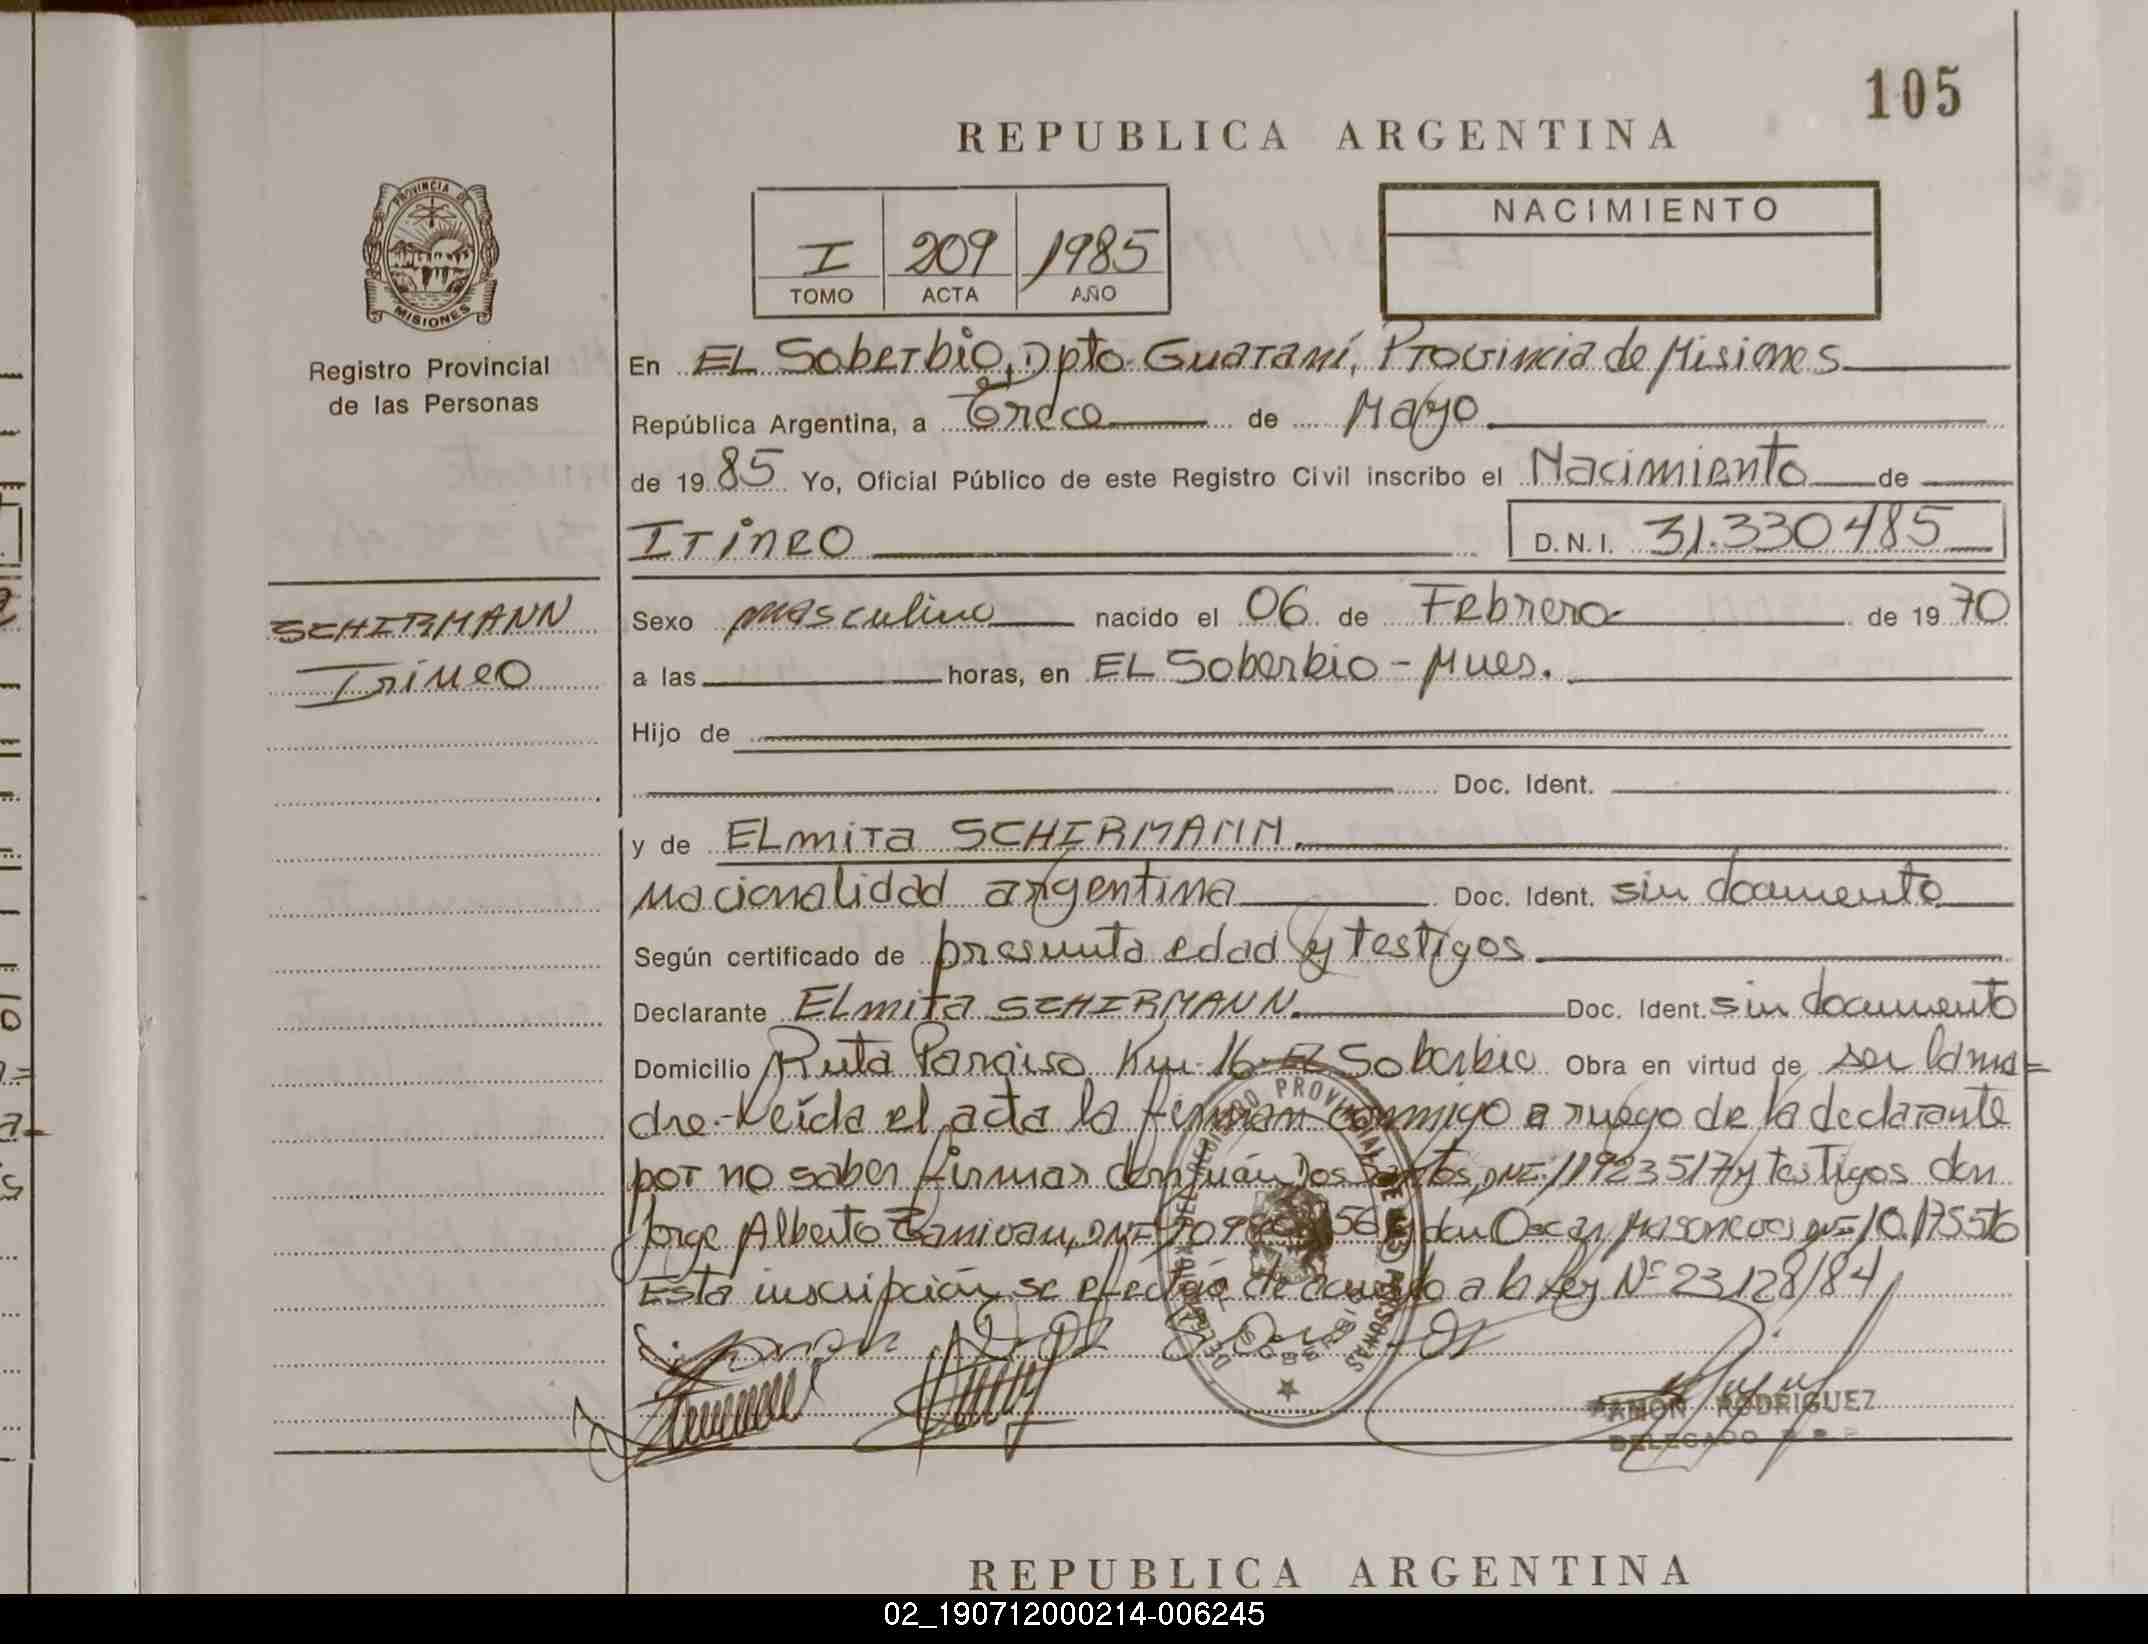 105
REPUBLICA ARGENTINA
I 209 1985
TOMO ACTA AÑO
NACIMIENTO
PROVINCIA DE
MISIONES
Registro Provincial
de las Personas
SCHIRMANN
Irineo
En EL Soberbio, Dpto Guaraní, Provincia de Misiones
República Argentina, a Trece de Mayo
de 1985 Yo, Oficial Público de este Registro Civil inscribo el Nacimiento de
Irineo D.N.I. 31.330485
Sexo masculino nacido el 06 de Febrero de 1970
a las horas, en EL Soberbio - Mnes.
Hijo de
Doc. Ident.
y de ELmira SCHIRMANN.
Nacionalidad argentina Doc. Ident. sin documento
Según certificado de presunta edad y testigos
Declarante ELmira SCHIRMANN. Doc. Ident. sin documento
Domicilio Ruta Paraiso Km. 16 - EL Soberbio Obra en virtud de ser la ma=
dre.- Leída el acta la firman conmigo a ruego de la declarante
por no saber firmar don Juán Dos Santos, DNI= 11923517 y testigos don
Jorge Alberto y don Oscar DNI= 10.175516
Esta inscripción se efectúa de acuerdo a la Ley Nº 23128/84
RAMON RODRIGUEZ
DELEGADO
REPUBLICA ARGENTINA
02_190712000214-006245